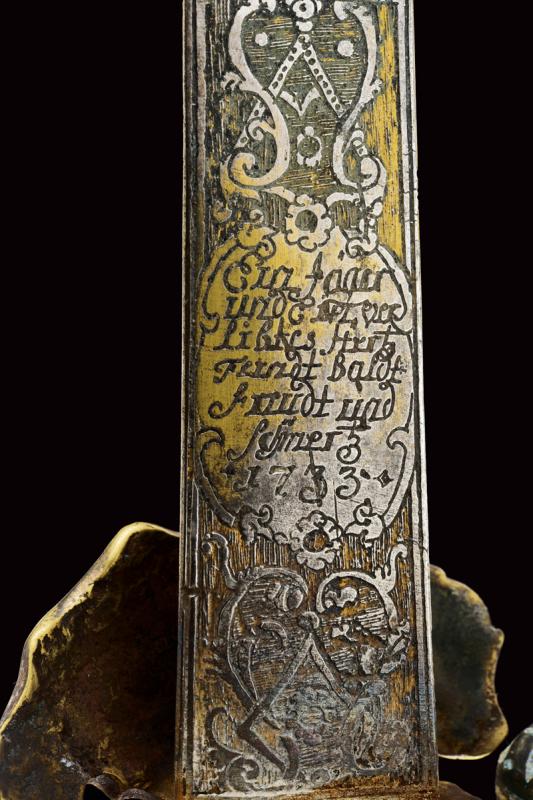 Ein Jäger
und Ein ver
libtes Hertz
Fendt Baldt
Freudt und
schmertz
1733